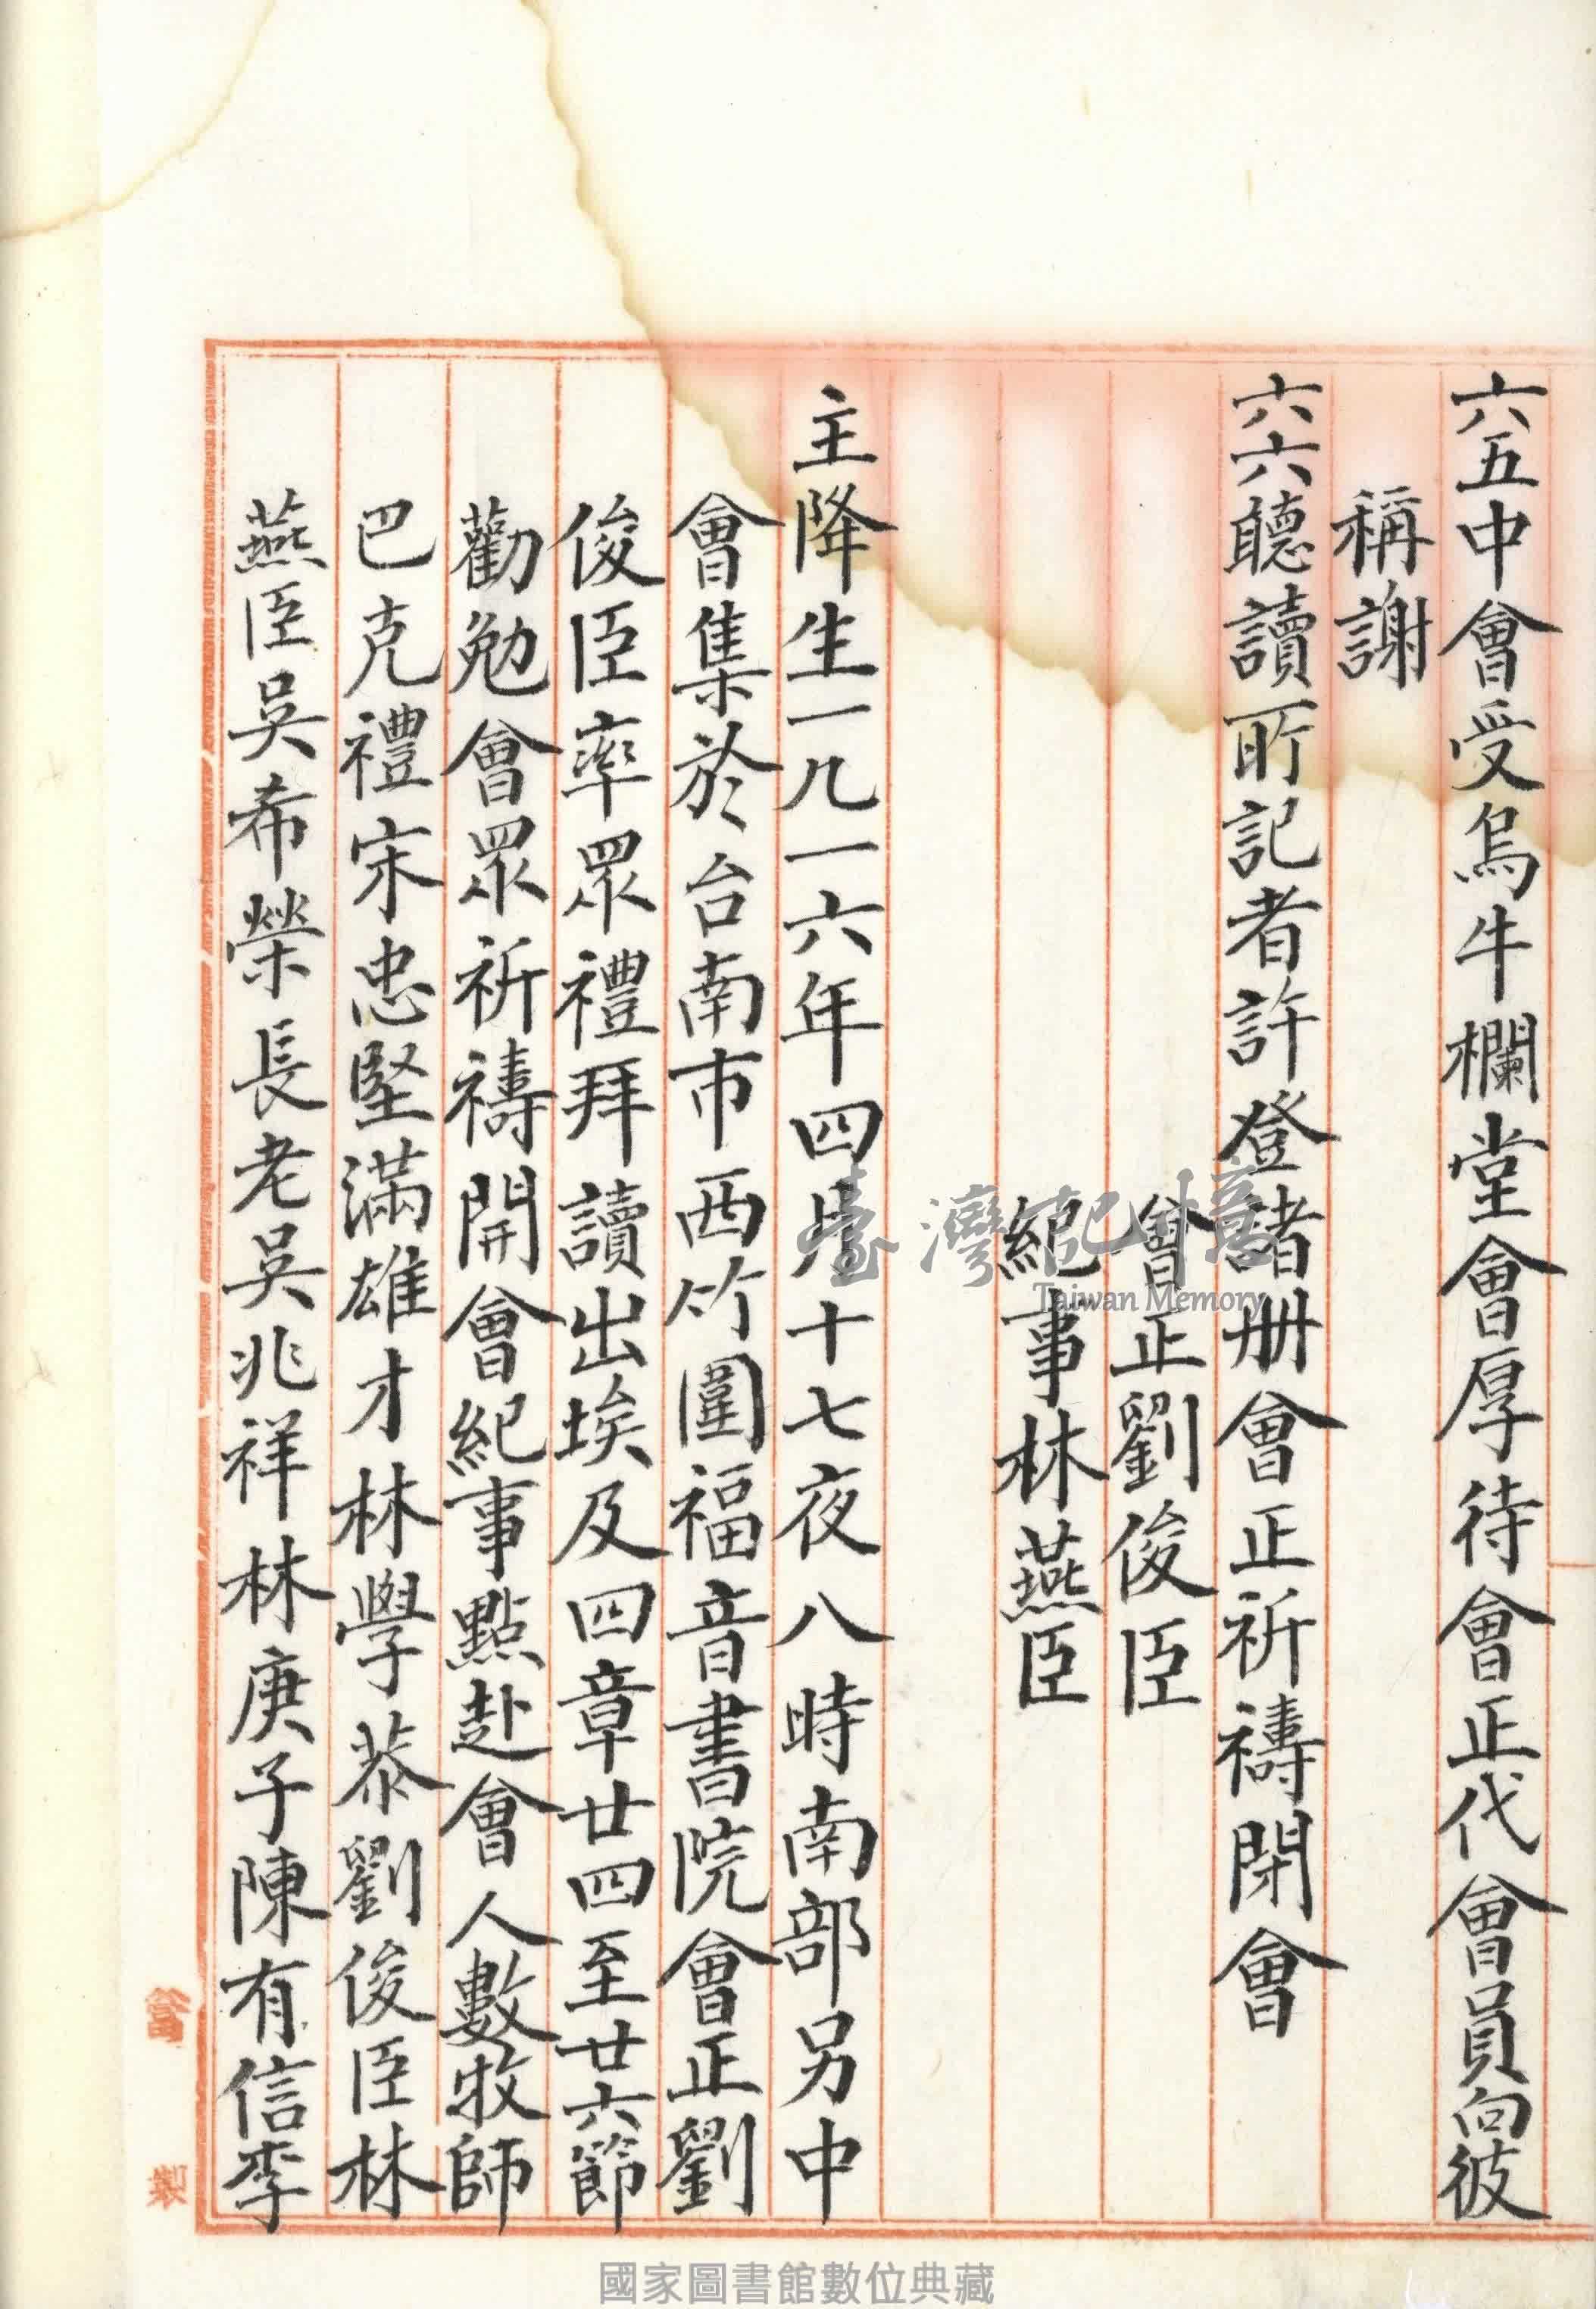 六五中會受烏牛欄堂會厚待會正代會員向彼
稱謝
六六聽讀所記者許登諸册會正祈禱閉會
會正劉俊臣
紀事林燕臣
主降生一九一六年四月十七夜八時南部另中
會集於台南市西竹圍福音書院會正劉
俊臣率眾禮拜讀出埃及四章廿四至廿六節
勸勉會眾祈禱開會紀事點赴會人數牧師
巴克禮宋忠堅滿雄才林學恭劉俊臣林
燕臣吳希榮長老吳兆祥林庚子陳有信李
臺灣記憶
Taiwan Memory
製
國家圖書館數位典藏